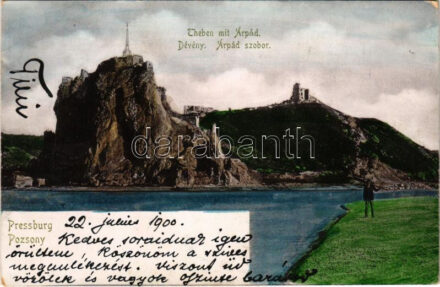 Theben mit Árpád.
Dévény. Árpád szobor.
Tini
darabanth
Pressburg
Pozsony
22. julius 1900.
Kedves soraidnak igen
örültem, köszönöm a szives
megemlékezést. viszont üd
vözölek és vagyok őszinte barátod